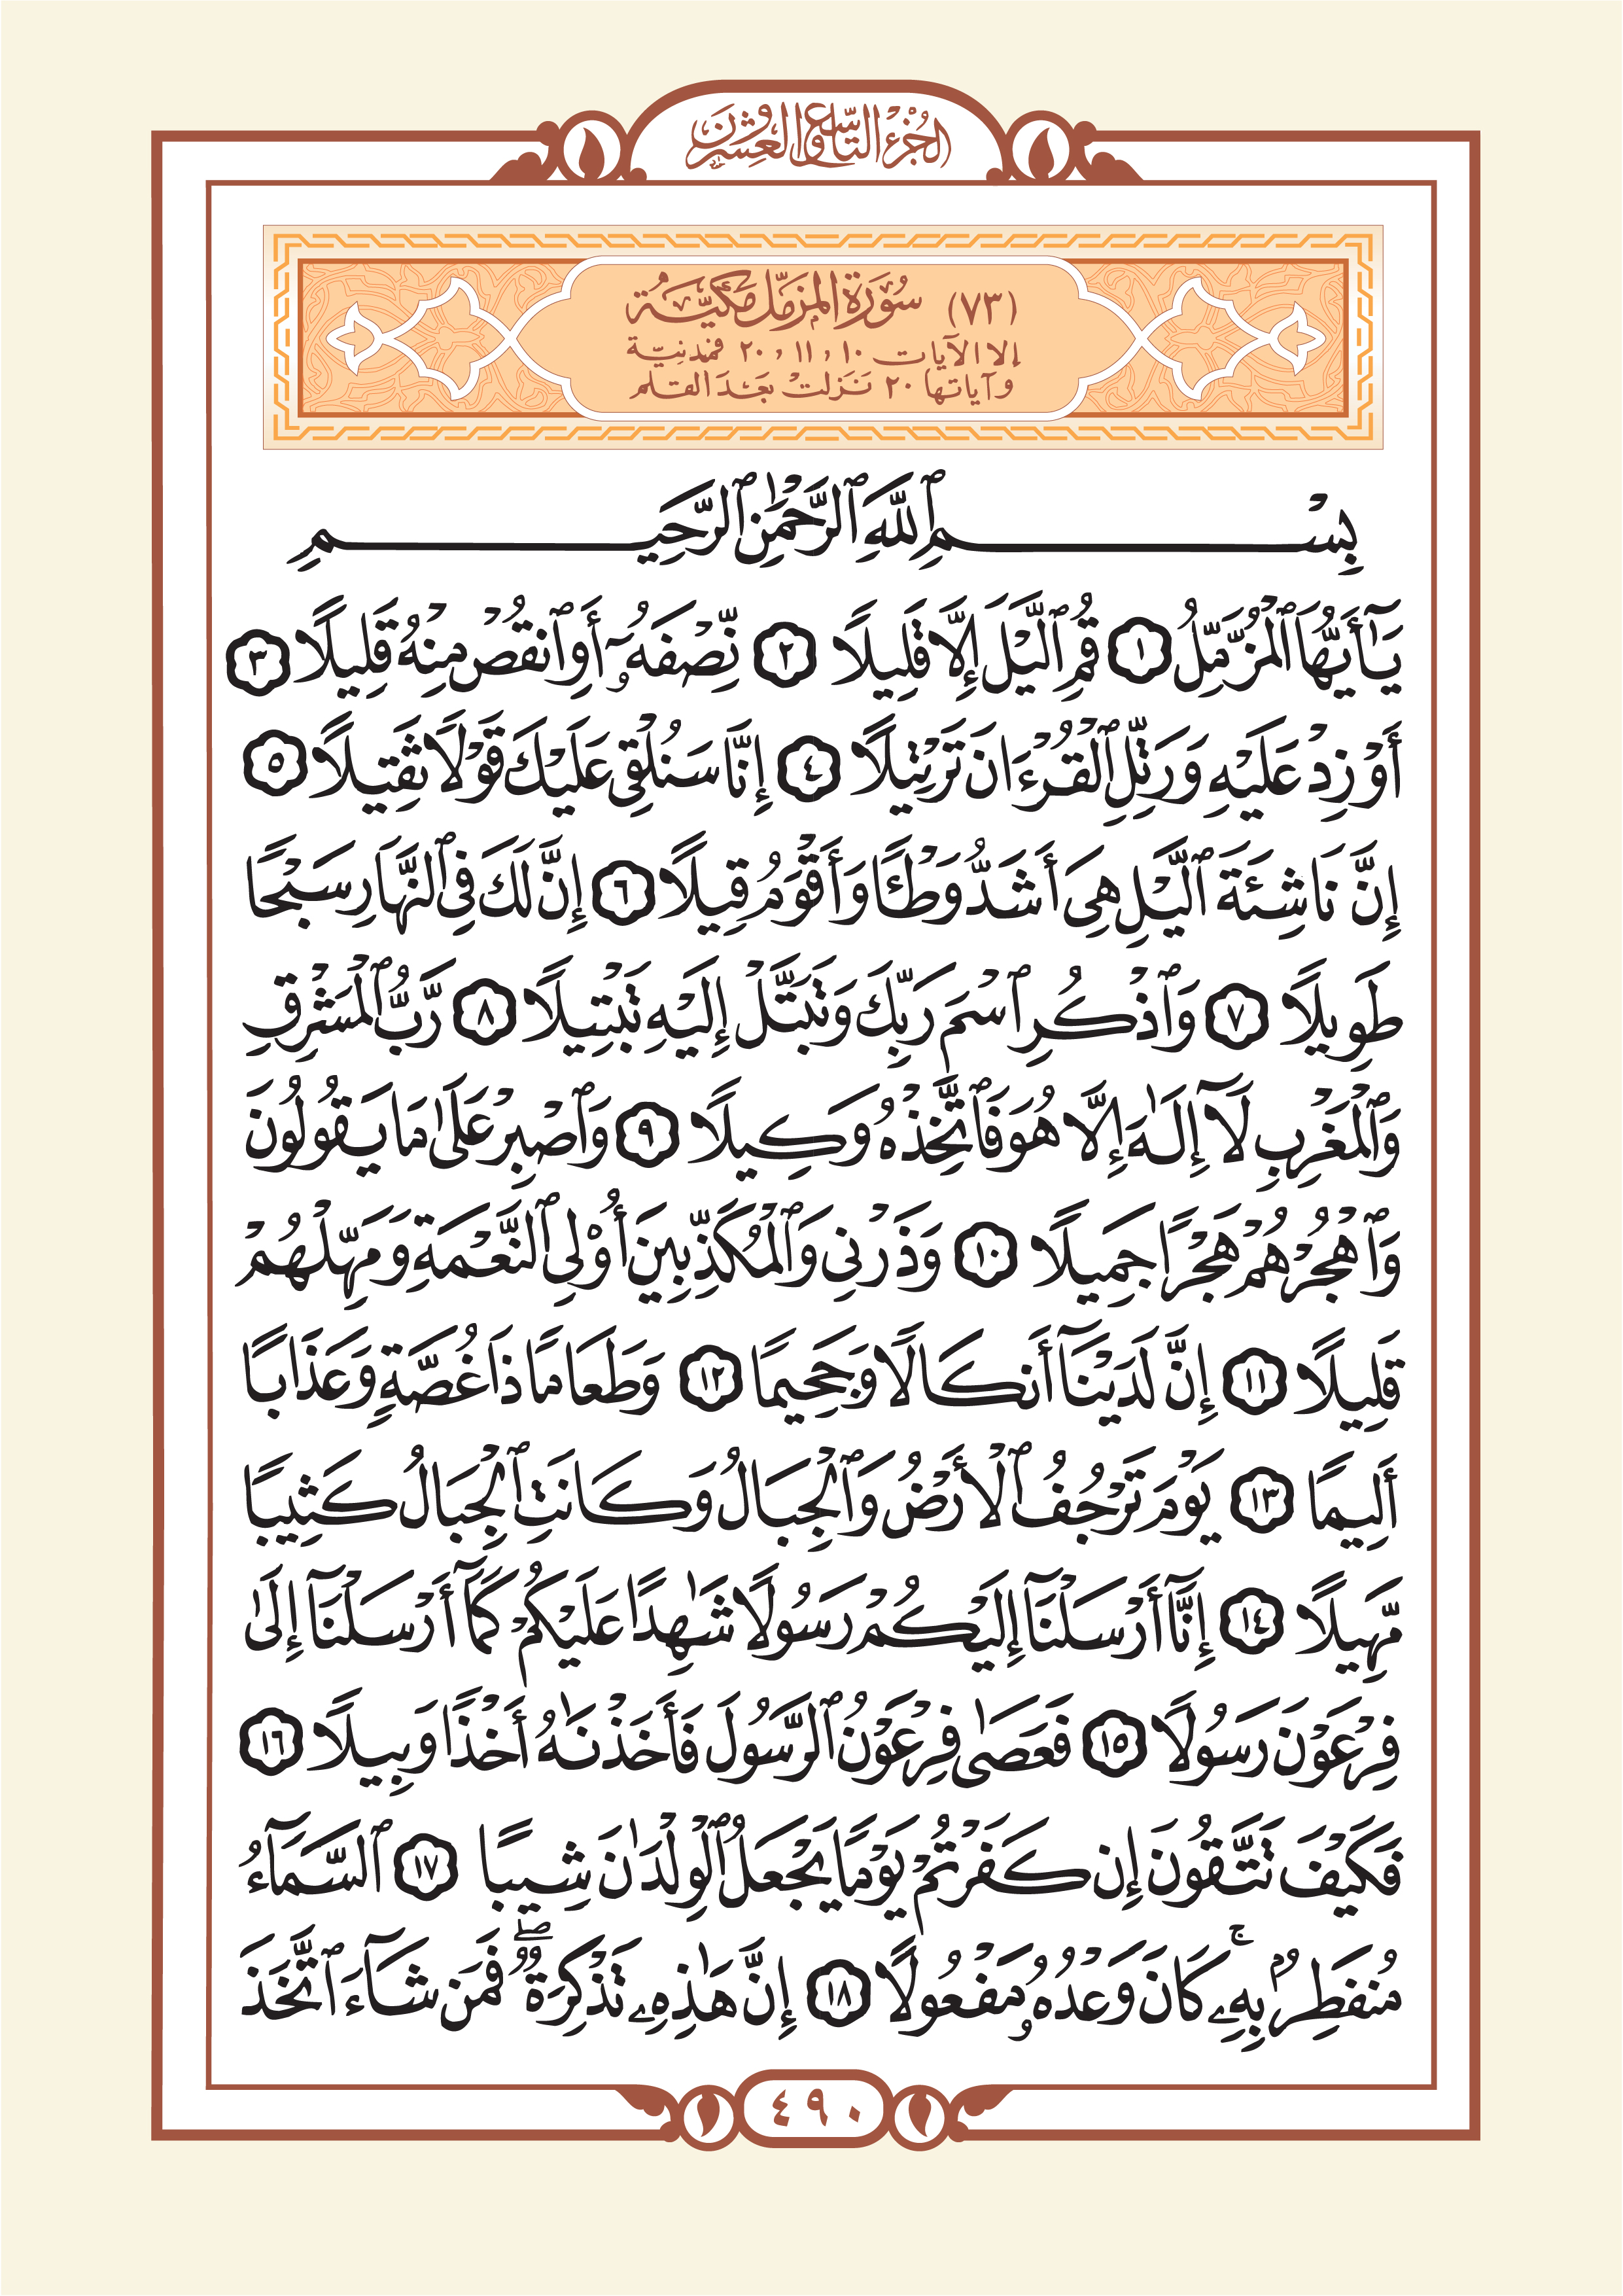 الجُزْءُ التَّاسِعُ وَالعِشْرُونَ
(٧٣) سُوَرَةُ المزَمّل مَكيّة
إلا الآيات ١٠ , ١١ , ٢٠ فمدنيّة
وآياتها ٢٠ نَزلتْ بَعدَ القلم
بِسْمِ ٱللَّهِ ٱلرَّحْمَٰنِ ٱلرَّحِيمِ
يَٰٓأَيُّهَا ٱلْمُزَّمِّلُ ١ قُمِ ٱلَّيْلَ إِلَّا قَلِيلًا ٢ نِّصْفَهُۥٓ أَوِ ٱنقُصْ مِنْهُ قَلِيلًا ٣
أَوْ زِدْ عَلَيْهِ وَرَتِّلِ ٱلْقُرْءَانَ تَرْتِيلًا ٤ إِنَّا سَنُلْقِى عَلَيْكَ قَوْلًا ثَقِيلًا ٥
إِنَّ نَاشِئَةَ ٱلَّيْلِ هِىَ أَشَدُّ وَطْـًٔا وَأَقْوَمُ قِيلًا ٦ إِنَّ لَكَ فِى ٱلنَّهَارِ سَبْحًا
طَوِيلًا ٧ وَٱذْكُرِ ٱسْمَ رَبِّكَ وَتَبَتَّلْ إِلَيْهِ تَبْتِيلًا ٨ رَّبُّ ٱلْمَشْرِقِ
وَٱلْمَغْرِبِ لَآ إِلَٰهَ إِلَّا هُوَ فَٱتَّخِذْهُ وَكِيلًا ٩ وَٱصْبِرْ عَلَىٰ مَا يَقُولُونَ
وَٱهْجُرْهُمْ هَجْرًا جَمِيلًا ١٠ وَذَرْنِى وَٱلْمُكَذِّبِينَ أُو۟لِى ٱلنَّعْمَةِ وَمَهِّلْهُمْ
قَلِيلًا ١١ إِنَّ لَدَيْنَآ أَنكَالًا وَجَحِيمًا ١٢ وَطَعَامًا ذَا غُصَّةٍ وَعَذَابًا
أَلِيمًا ١٣ يَوْمَ تَرْجُفُ ٱلْأَرْضُ وَٱلْجِبَالُ وَكَانَتِ ٱلْجِبَالُ كَثِيبًا
مَّهِيلًا ١٤ إِنَّآ أَرْسَلْنَآ إِلَيْكُمْ رَسُولًا شَٰهِدًا عَلَيْكُمْ كَمَآ أَرْسَلْنَآ إِلَىٰ
فِرْعَوْنَ رَسُولًا ١٥ فَعَصَىٰ فِرْعَوْنُ ٱلرَّسُولَ فَأَخَذْنَٰهُ أَخْذًا وَبِيلًا ١٦
فَكَيْفَ تَتَّقُونَ إِن كَفَرْتُمْ يَوْمًا يَجْعَلُ ٱلْوِلْدَٰنَ شِيبًا ١٧ ٱلسَّمَآءُ
مُنفَطِرٌۢ بِهِۦ ۚ كَانَ وَعْدُهُۥ مَفْعُولًا ١٨ إِنَّ هَٰذِهِۦ تَذْكِرَةٌ ۖ فَمَن شَآءَ ٱتَّخَذَ
٤٩٠